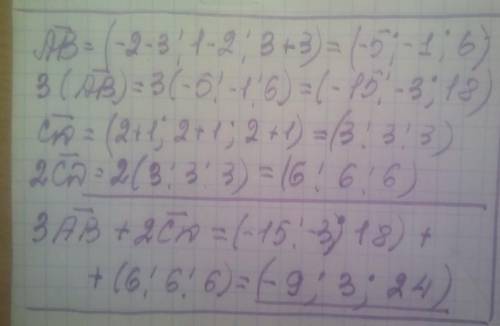 AB̅ = (-2-3; 1-2; 3+3) = (-5; -1; 6)
3(AB̅) = 3(-5; -1; 6) = (-15; -3; 18)
CD̅ = (2+1; 2+1; 2+1) = (3; 3; 3)
2CD̅ = 2(3; 3; 3) = (6; 6; 6)
3AB̅ + 2CD̅ = (-15; -3; 18) +
+ (6; 6; 6) = (-9; 3; 24)